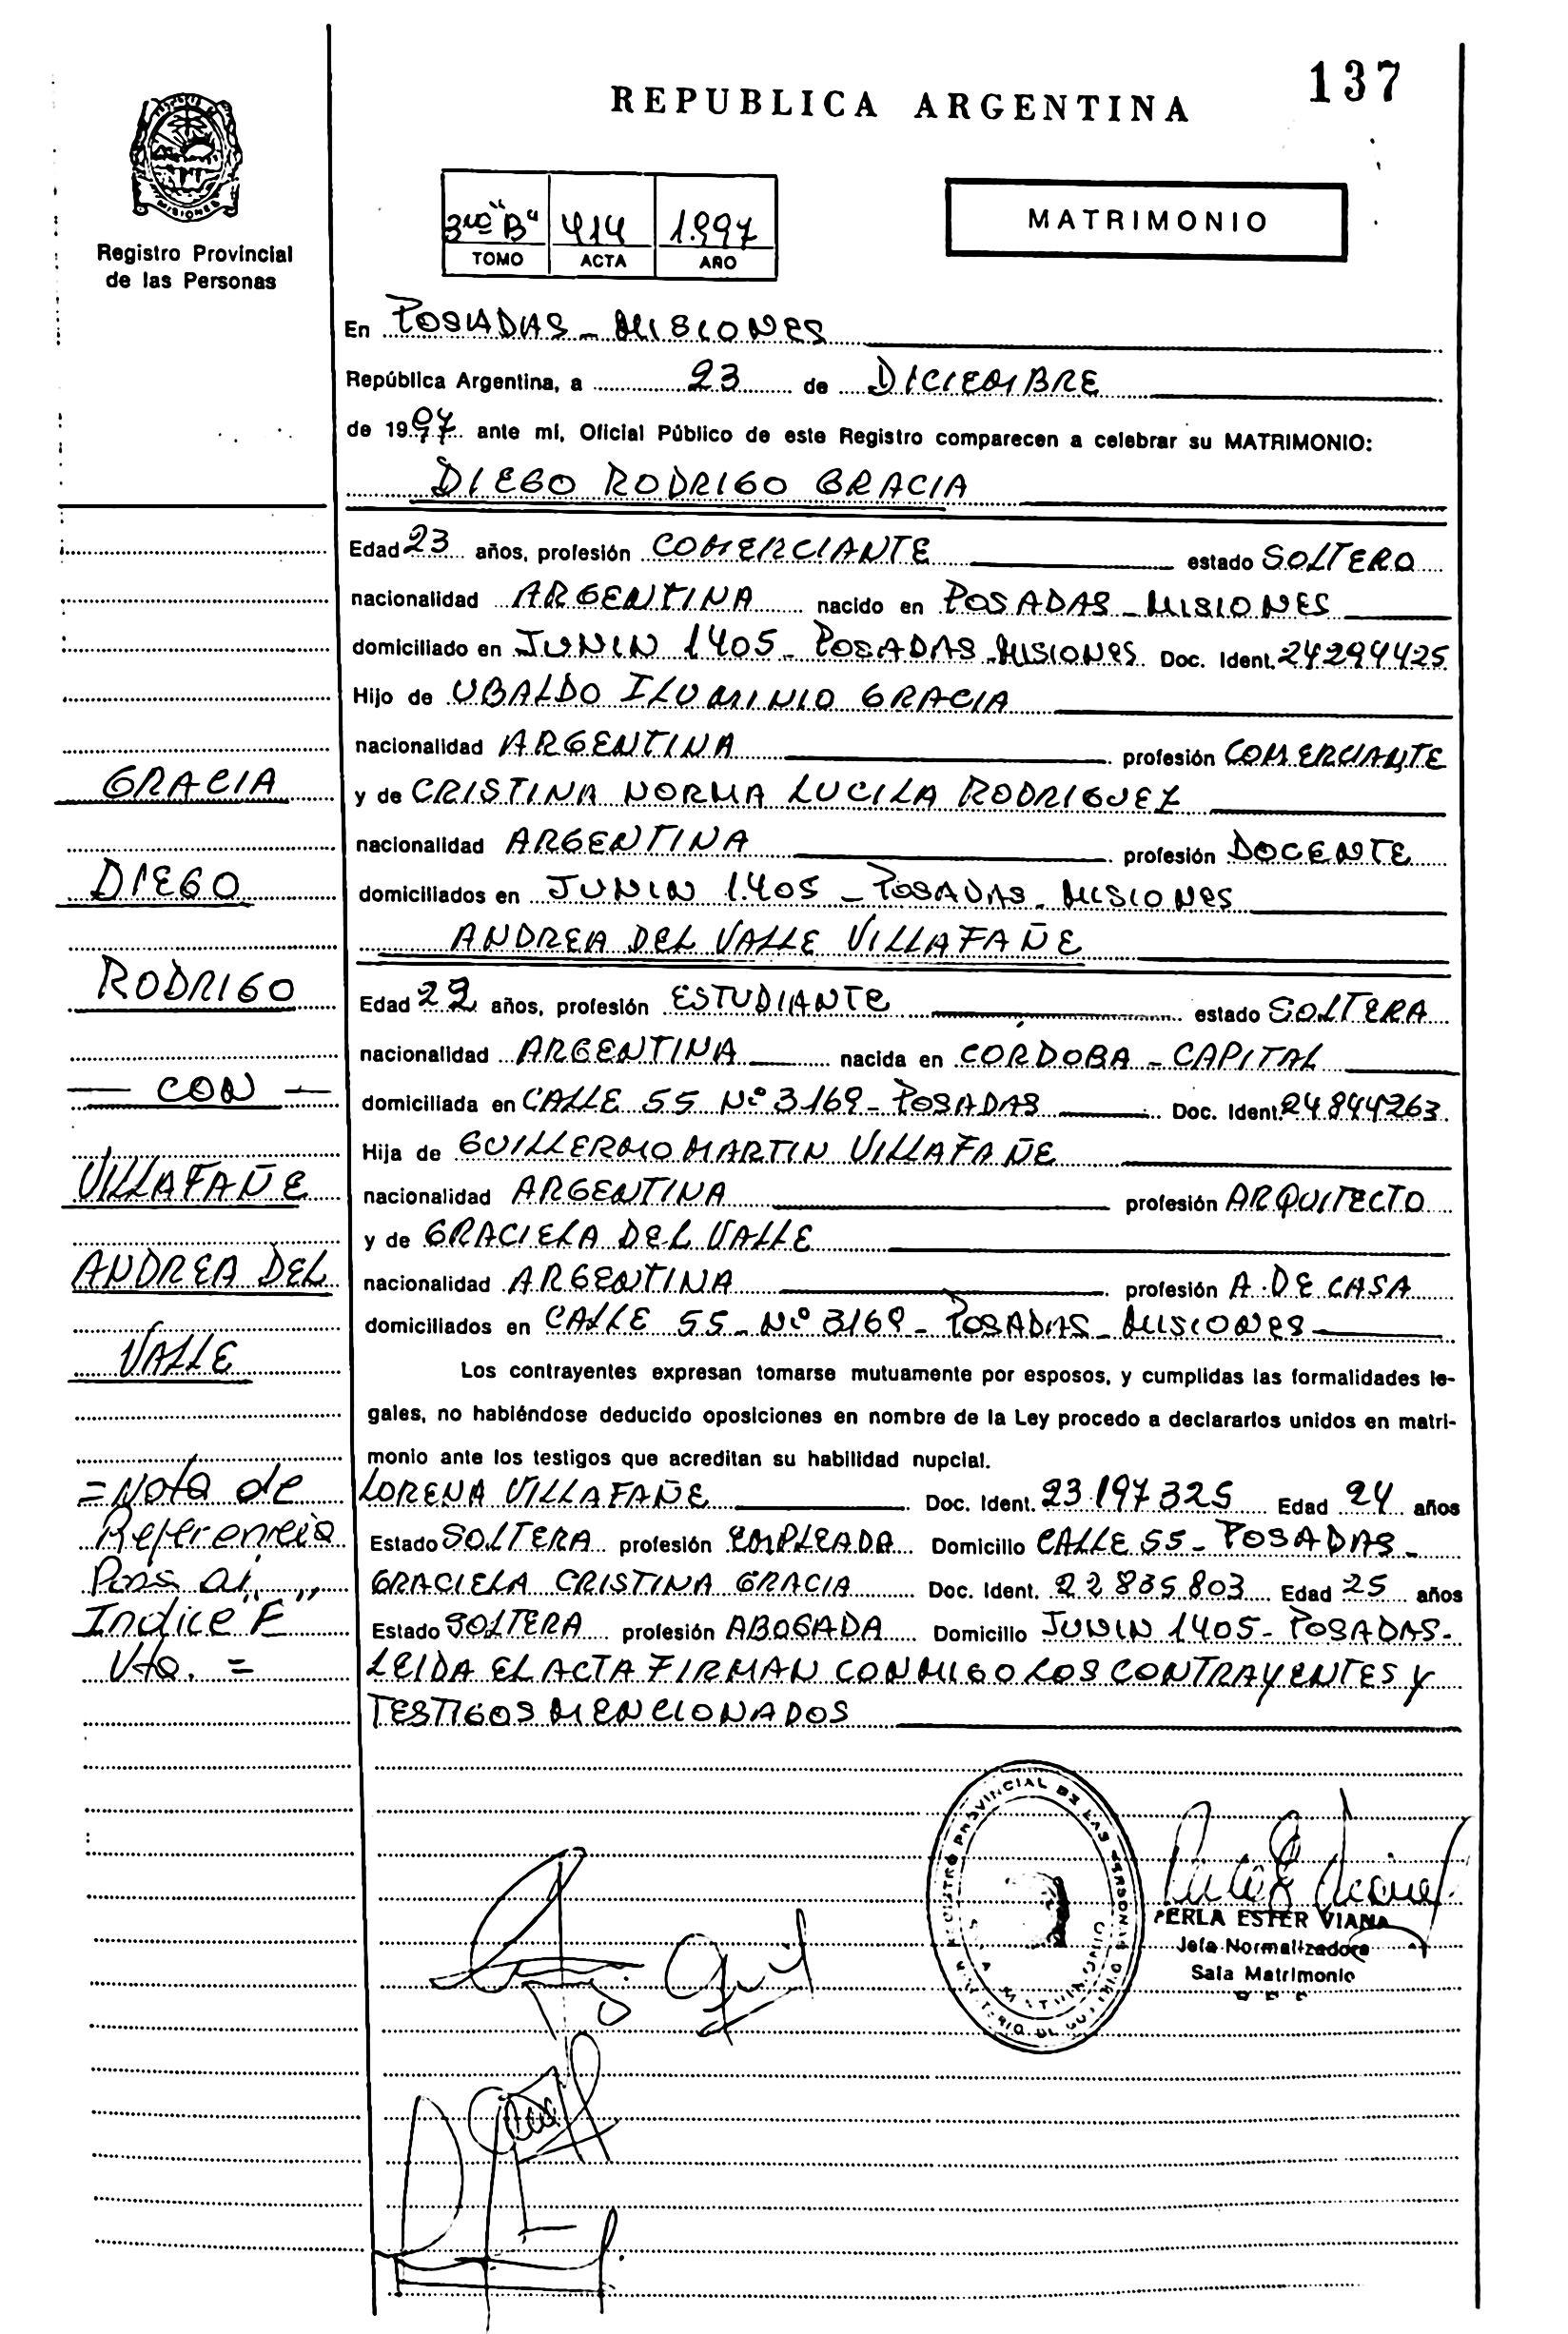 137
REPUBLICA ARGENTINA
MISIONES
Registro Provincial
de las Personas
3ro "B" 414 1.997
TOMO ACTA AÑO
MATRIMONIO
En POSADAS - MISIONES
República Argentina, a 23 de DICIEMBRE
de 1997 ante mi, Oficial Público de este Registro comparecen a celebrar su MATRIMONIO:
DIEGO RODRIGO GRACIA
Edad 23 años, profesión COMERCIANTE estado SOLTERO
nacionalidad ARGENTINA nacido en POSADAS - MISIONES
domiciliado en JUNIN 1405 - POSADAS - MISIONES Doc. Ident. 24294425
Hijo de UBALDO ILUMINIO GRACIA
nacionalidad ARGENTINA profesión COMERCIANTE
y de CRISTINA NORMA LUCILA RODRIGUEZ
nacionalidad ARGENTINA profesión DOCENTE
domiciliados en JUNIN 1.405 - POSADAS - MISIONES
ANDREA DEL VALLE VILLAFAÑE
Edad 22 años, profesión ESTUDIANTE estado SOLTERA
nacionalidad ARGENTINA nacida en CORDOBA - CAPITAL
domiciliada en CALLE 55 Nº 3169 - POSADAS Doc. Ident. 24844263
Hija de GUILLERMO MARTIN VILLAFAÑE
nacionalidad ARGENTINA profesión ARQUITECTO
y de GRACIELA DEL VALLE
nacionalidad ARGENTINA profesión A. DE CASA
domiciliados en CALLE 55 - Nº 3169 - POSADAS - MISIONES
Los contrayentes expresan tomarse mutuamente por esposos, y cumplidas las formalidades le-
gales, no habiéndose deducido oposiciones en nombre de la Ley procedo a declararlos unidos en matri-
monio ante los testigos que acreditan su habilidad nupcial.
LORENA VILLAFAÑE Doc. Ident. 23.197.325 Edad 24 años
Estado SOLTERA profesión EMPLEADA Domicilio CALLE 55 - POSADAS -
GRACIELA CRISTINA GRACIA Doc. Ident. 22.835.803 Edad 25 años
Estado SOLTERA profesión ABOGADA Domicilio JUNIN 1405 - POSADAS -
LEIDA EL ACTA FIRMAN CONMIGO LOS CONTRAYENTES Y
TESTIGOS MENCIONADOS
GRACIA
DIEGO
RODRIGO
— CON —
VILLAFAÑE
ANDREA DEL
VALLE
= Nota de
Referencia
Pasa al
Indice "F"
Vta. =
PERLA ESTER VIANA
Jefa Normalizadora
Sala Matrimonio